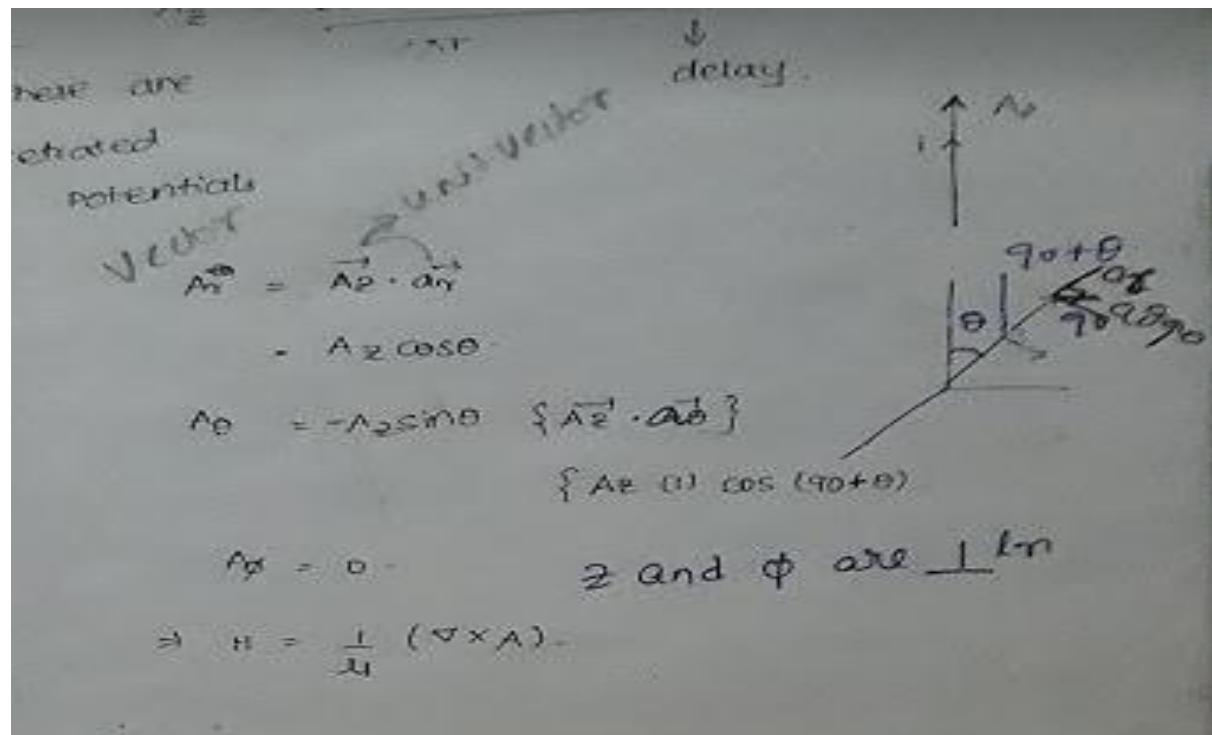 delay.
here are
etrated
potentials
vector
unit vector
Ar = Az · ar
= Az cosθ
Aθ = -Az sinθ {Az · aθ}
{Az (1) cos (90+θ)
Aφ = 0
z and φ are ⊥ lr
⇒ H = 1/μ (∇ × A).
i
90+θ
ar
θ
90
aθ